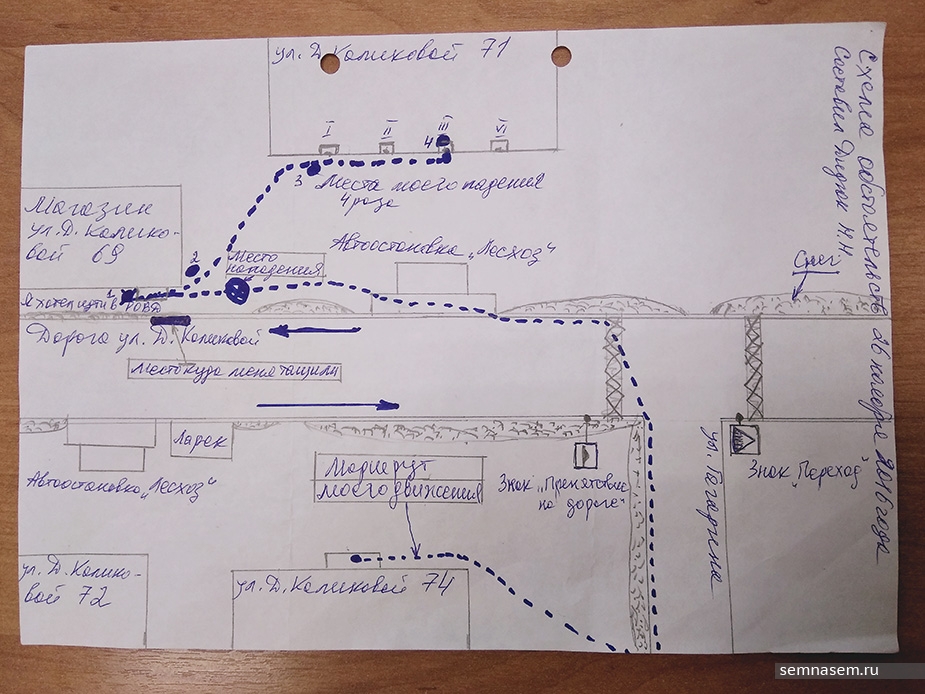 Схема обстоятельств 26 ноября 2016 года
Составил Дидюк Н.Н.
ул. Д. Колиховой 71
I II III VI
4
3
Места моего падения
4 раза
Магазин
ул. Д. Калико-
вой 69
2
Место
нападения
Автоостановка „Лесхоз"
Снег
1
Я хотел идти в РОВД
Дорога ул. Д. Каликовой
Место куда меня тащили
Ларек
Автоостановка „Лесхоз"
Маршрут
моего движения
Знак „Препятствие
на дороге"
ул. Гагарина
Знак „Переход"
ул. Д. Калико-
вой 72
ул. Д. Каликовой 74
semnasem.ru